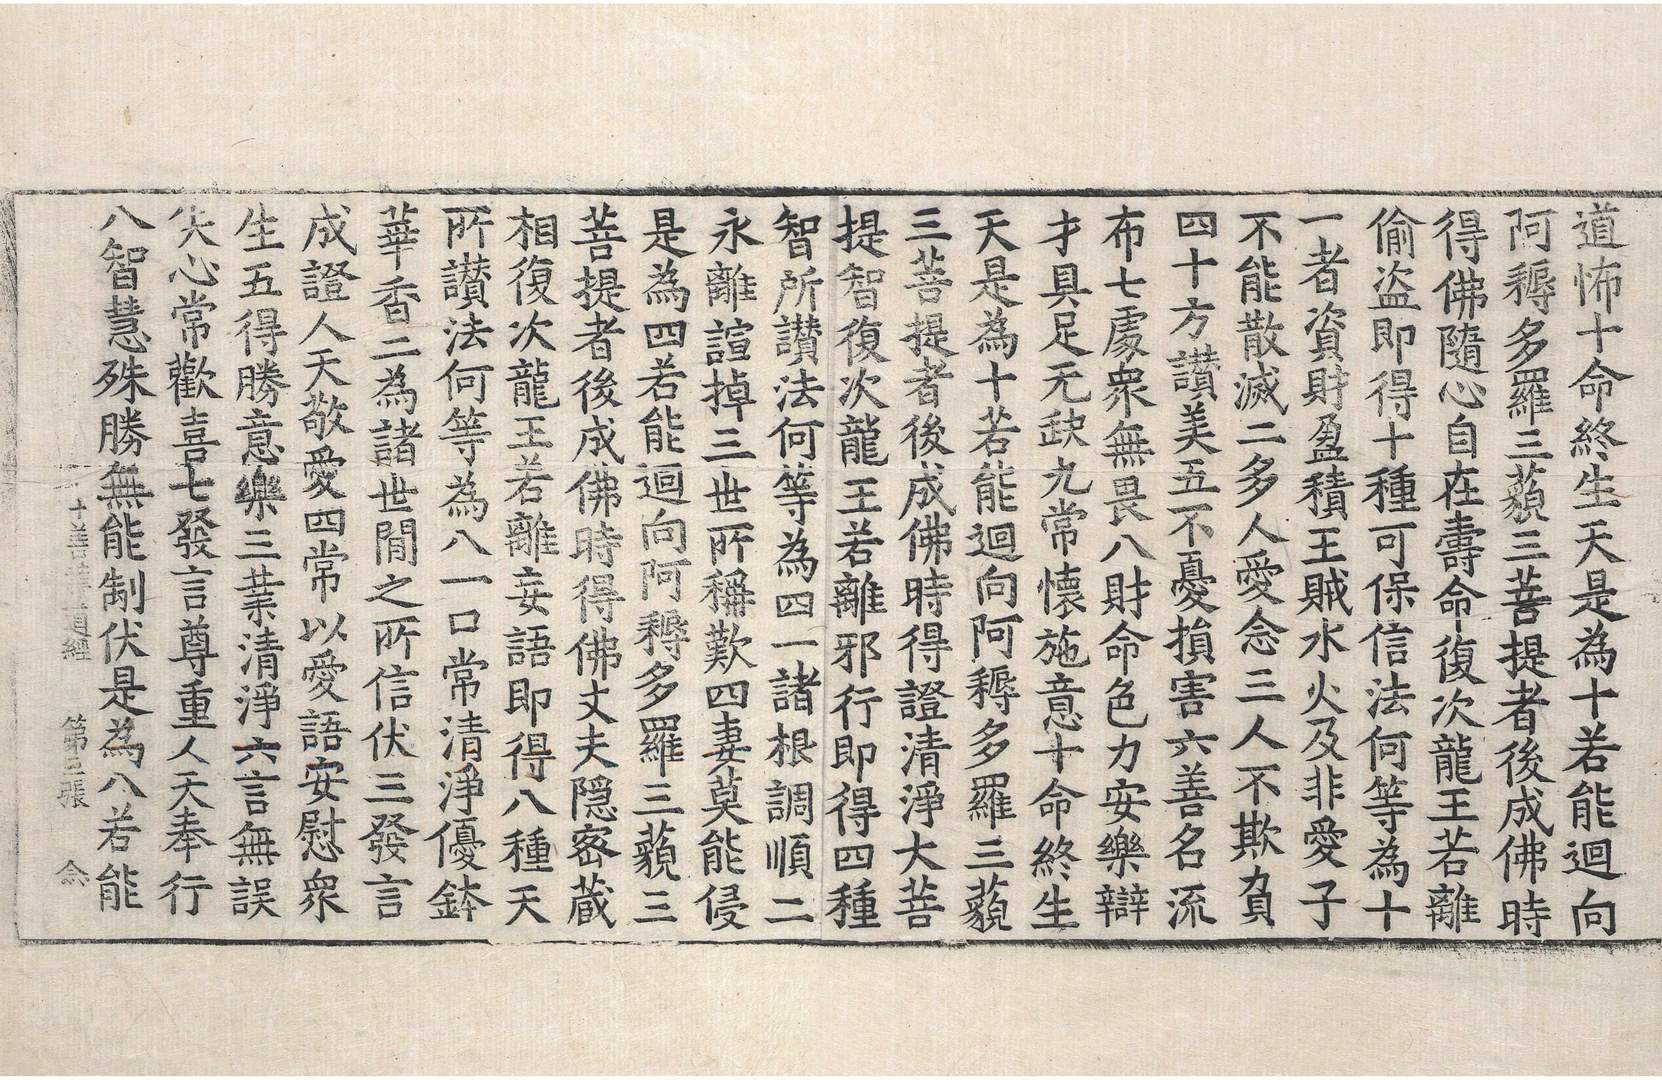 道怖十命終生天是為十若能迴向
阿耨多羅三藐三菩提者後成佛時
得佛隨心自在壽命復次龍王若離
偷盜即得十種可保信法何等為十
一者資財盈積王賊水火及非愛子
不能散滅二多人愛念三人不欺負
四十方讃美五不憂損害六善名流
布七處衆無畏八財命色力安樂辯
才具足无缺九常懷施意十命終生
天是為十若能迴向阿耨多羅三藐
三菩提者後成佛時得證清淨大菩
提智復次龍王若離邪行即得四種
智所讃法何等為四一諸根調順二
永離諠掉三世所稱歎四妻莫能侵
是為四若能迴向阿耨多羅三藐三
菩提者後成佛時得佛丈夫隱密藏
相復次龍王若離妄語即得八種天
所讃法何等為八一口常清淨優鉢
華香二為諸世間之所信伏三發言
成證人天敬愛四常以愛語安慰衆
生五得勝意樂三業清淨六言無誤
失心常歡喜七發言尊重人天奉行
八智慧殊勝無能制伏是為八若能
十善業道經 第三張